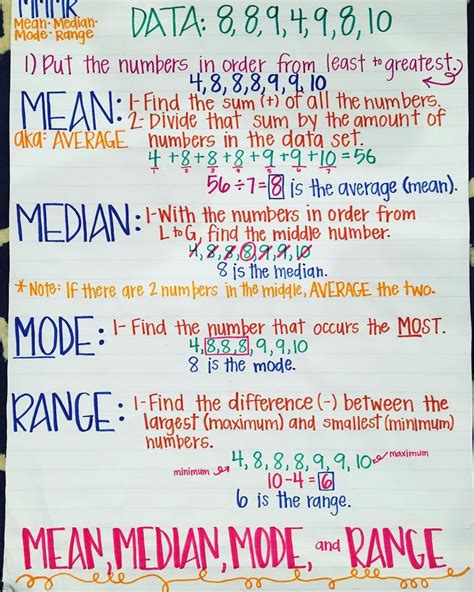 MMMR
Mean · Median ·
Mode · Range
DATA: 8,8,9,4,9,8,10
1) Put the numbers in order from least to greatest.
4,8,8,8,9,9,10
MEAN:
aka: AVERAGE
1- Find the sum (+) of all the numbers.
2- Divide that sum by the amount of
numbers in the data set.
4 + 8 + 8 + 8 + 9 + 9 + 10 = 56
1 2 3 4 5 6 7
56 ÷ 7 = 8 is the average (mean).
MEDIAN:
1- With the numbers in order from
L to G, find the middle number.
4,8,8,8,9,9,10
8 is the median.
*Note: If there are 2 numbers in the middle, AVERAGE the two.
MODE:
1- Find the number that occurs the MOST.
4,8,8,8,9,9,10
8 is the mode.
RANGE:
1- Find the difference (-) between the
largest (maximum) and smallest (minimum)
numbers.
minimum 4, 8, 8, 8, 9, 9, 10 maximum
10-4=6
6 is the range.
MEAN, MEDIAN, MODE, and RANGE